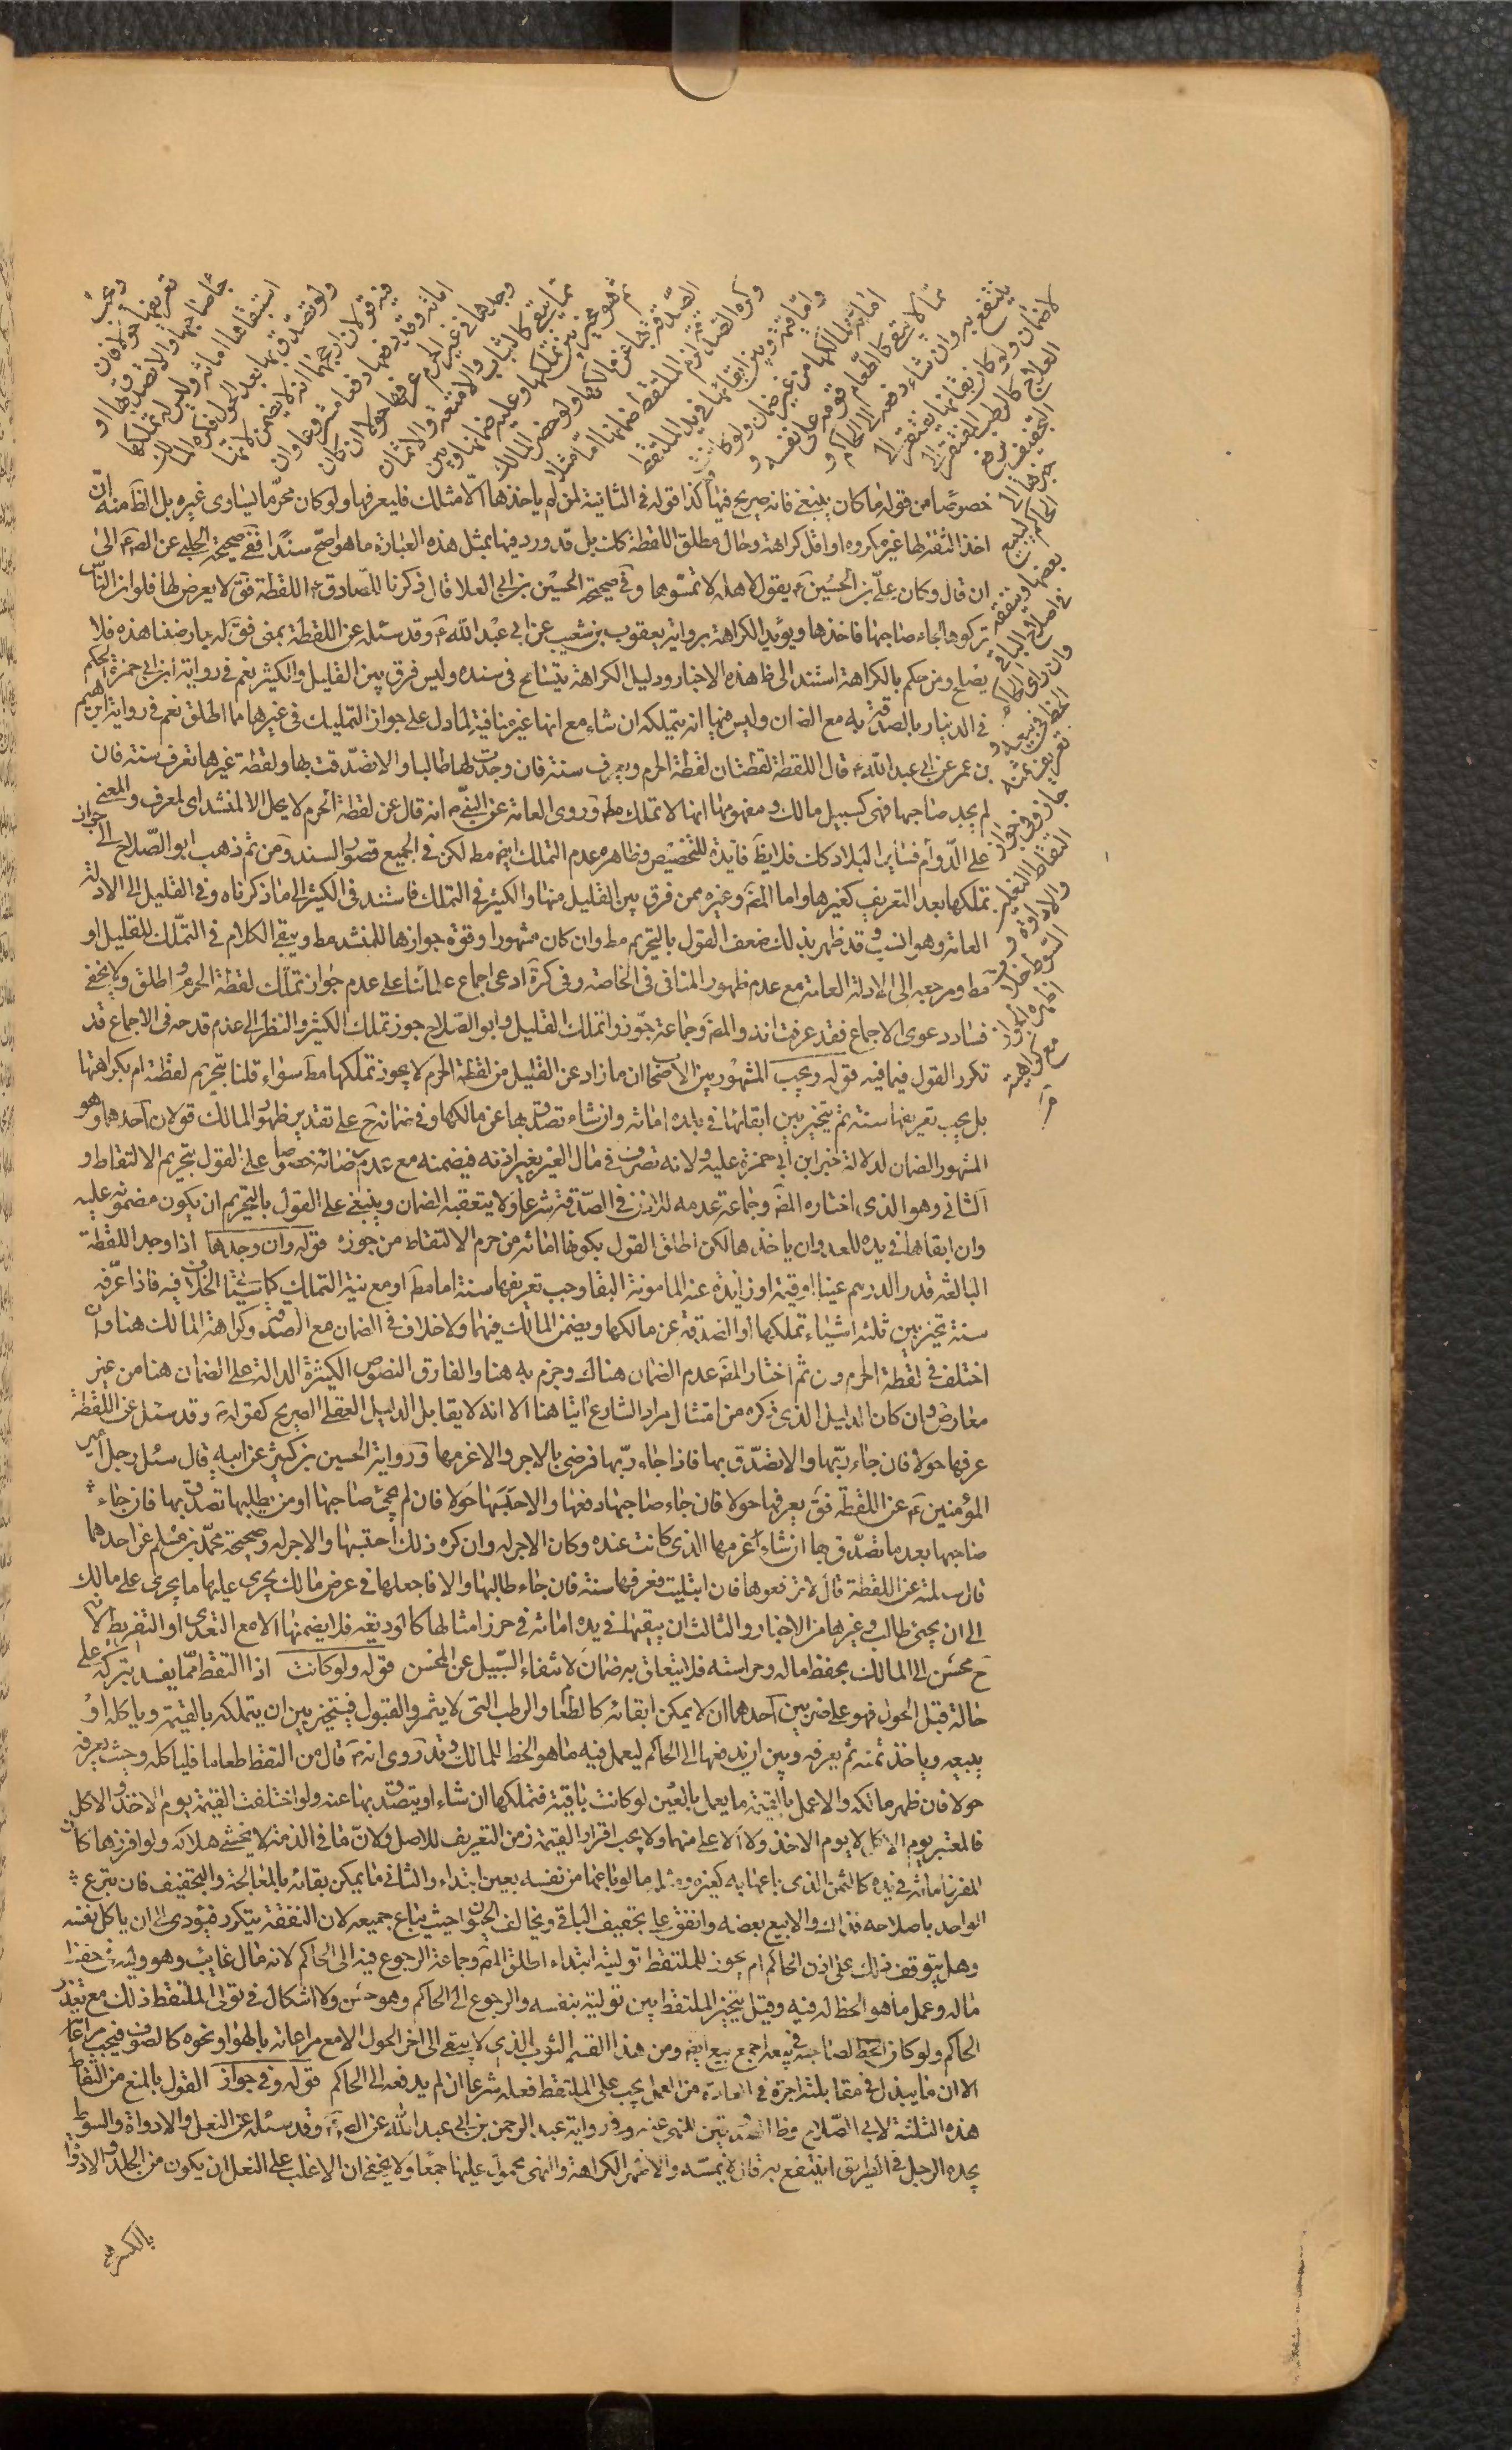 وتجب
تعريفها حولا فان
جاء صاحبها والا تصدق بها او
استبقاها امانة وليس له تملكها
ولو تصدق بها بعد الحول فكره المالك
فيه قولان ارجحهما انه لا يضمن لانها
امانة وقد دفعها دفعا مشروعا وان
وجدها في غير الحرم عرفها حولا ان كان
مما يبقى كالثياب والامتعة والاثمان
ثم هو مخير بين تملكها وعليه ضمانها وبين
الصدقة بها عن مالكها ولو حضر المالك
وكره الصدقة لزم الملتقط ضمانها اما مثلا
واما قيمة وبين ابقائها في يد الملتقط
امانة لمالكها من غير ضمان ولو كانت
مما لا يبقى كالطعام قومه على نفسه و
ينتفع به وان شاء دفعه الى الحاكم و
لا ضمان ولو كان بقاؤها يفتقر الى
العلاج كالرطب المفتقر الى
التجفيف يرفع
خبرها الى
الحاكم ليبيع
بعضها وينفقه
في اصلاح الباقي
وان رأى الحاكم
الحظ في بيعه و
تعريف ثمنه
جاز وفي جواز
التقاط النعلين
والاداوة و
السوط خلاف
اظهره الجواز
مع كراهية
خصوصا من قوله ما كان ينبغي فانه صريح فيها كذا قوله في الثانية لمن له ياخذها الا مثلك فليعرفها ولو كان محرما لساوى غيره بل الظ منه ان
اخذ الثقة لها غير مكروه او اقل كراهة وحال مطلق اللقطة كك بل قد ورد فيها بمثل هذه العبارة ما هو اصح سندا ففي صحيحة الحلبي عن الص ع الى
ان قال وكان علي بن الحسين ع يقول لاهله لا تمسوها وفي صحيحة الحسين بن ابي العلا قال ذكرنا للصادق ع اللقطة فق لا يعرض لها فلو ان الناس
تركوها لجاء صاحبها فاخذها ويؤيد الكراهة برواية يعقوب بن شعيب عن ابي عبد الله ع وقد سئله عن اللقطة بمنى فق له بارضنا هذه فلا
يصلح ومن حكم بالكراهة استند الى ظ هذه الاخبار ودليل الكراهة يتسامح في سنده وليس فرق بين القليل والكثير نعم في رواية ابن ابي حمزة الحكم
في الدينار بالصدقة به مع الضمان وليس فيها انه يتملكه ان شاء مع انها غير منافية لما دل على جواز التمليك في غيرها ما اطلق نعم في رواية ابرهيم
بن عمر عن ابي عبد الله ع قال اللقطة لقطتان لقطة الحرم ويعرف سنة فان وجدت لها طالبا والا تصدقت بها ولقطة غيرها تعرف سنة فان
لم يجد صاحبها فهي كسبيل مالك ومفهومها انها لا تملك مط وروى العامة عن النبي ص انه قال عن لقطة الحرم لا يحل الا لمنشد اى لمعرف والمعنى
على الدوام فسائر البلاد كك فلا يظ فايدة للتخصيص وظاهره عدم التملك ايض مط لكن في الجميع قصور السند ومن ثم ذهب ابو الصلاح الى جواز
تملكها بعد التعريف كغيرها واما المص وغيره ممن فرق بين القليل منها والكثير في التملك فاستند في الكثير الى ما ذكرناه وفي القليل الى الادلة
العامة وهو انسب وقد ظهر بذلك ضعف القول بالتحريم مط وان كان مشهورا وقوة جوازها للمنشد مط ويبقى الكلام في التملك للقليل او
مط ومرجعه الى الادلة العامة مع عدم ظهور المنافي في الخاصة وفي كرة ادعى اجماع علمائنا على عدم جواز تملك لقطة الحرم واطلق ولا يخفى
فساد دعوى الاجماع فقد عرفت انه والمص وجماعة جوزوا تملك القليل وابو الصلاح جوز تملك الكثير والنظر الى عدم قدحه في الاجماع قد
تكرر القول فيما فيه قوله ويجب المشهور بين الاصحاب ان ما زاد عن القليل من لقطة الحرم لا يجوز تملكها مط سواء قلنا بتحريم لقطته ام بكراهتها
بل يجب تعريفها سنة ثم يتخير بين ابقائها في يده امانة وان شاء تصدق بها عن مالكها وفي ضمانه ح على تقدير ظهور المالك قولان احدهما وهو
المشهور الضمان لدلالة خبر ابن ابي حمزة عليه ولانه تصرف في مال الغير بغير اذنه فيضمنه مع عدم رضاه خصوصا على القول بتحريم الالتقاط و
الثاني وهو الذي اختاره المص وجماعة عدمه للاذن في الصدقة شرعا ولا يتعقبه الضمان وينبغي على القول بالتحريم ان يكون مضمونة عليه
وان ابقاها في يده للعدوان ياخذها لكن اطلق القول بكونها امانة من حرم الالتقاط من جوزه قوله وان وجدها اذا وجد اللقطة
البالغة قدر الدرهم عينا او قيمة او زائدة عنه المامونة البقا وجب تعريفها سنة اما مط او مع نية التملك كما سيئاتي الخلاف فيه فاذا عرفه
سنة تخير بين ثلثه اشياء تملكها او الصدقة عن مالكها ويضمن المالك فيهما ولا خلاف في الضمان مع الصدقة وكراهة المالك هنا وان
اختلف في لقطة الحرم ومن ثم اختار المص عدم الضمان هناك وجزم به هنا والفارق النصوص الكثيرة الدالة على الضمان هنا من غير
معارض وان كان الدليل الذي ذكره من امتثال مراد الشارع اتيا هنا الا انه لا يقابل الدليل العقلي الصريح كقوله ع وقد سئل عن اللقطة
عرفها حولا فان جاء ربها والا تصدق بها فاذا جاء ربها فرضي بالاجر والا غرمها ورواية الحسين بن كثير عن ابيه قال سئل رجل امير
المؤمنين ع عن اللقطة فق يعرفها حولا فان جاء صاحبها دفعها والا حبسها حولا فان لم يجئ صاحبها او من يطلبها تصدق بها فان جاء
صاحبها بعد ما تصدق بها ان شاء اغرمها الذي كانت عنده وكان الاجر له وان كره ذلك احتسبها والاجر له وصحيحة محمد بن مسلم عن احدهما
قال سئلته عن اللقطة قال لا ترفعوها فان ابتليت فعرفها سنة فان جاء طالبها والا فاجعلها في عرض مالك يجري عليها ما يجري على مالك
الى ان يجئ طالب وغيرها من الاخبار والثالث ان يبقيها في يده امانة في حرز امثالها كالوديعة فلا يضمنها الا مع التعدي او التفريط لانه
ح محسن الى المالك بحفظ ماله وحراسته فلا يتعلق به ضمان لانتفاء السبيل عن المحسن قوله ولو كانت اذا التقط مما يفسد بتركه على
حالة قبل الحول فهو على ضربين احدهما ان لا يمكن ابقائه كالطعام والرطب التي لا يثمر والقبول فيتخير بين ان يتملكه بالقيمة وياكله او
يبيعه وياخذ ثمنه ثم يعرفه وبين ان يدفعها الى الحاكم ليعمل فيه ما هو الحظ للمالك وقد روى انه ع قال من التقط طعاما فلياكله وحيث يعرفه
حولا فان ظهر مالكه والا عمل بالقيمة ما يعمل بالعين لو كانت باقية فتملكها ان شاء او يتصدق بها عنه ولو اختلفت القيمة يوم الاخذ والاكل
فالمعتبر يوم الاكل لا يوم الاخذ ولا الاعلى منهما ولا يجب افراز القيمة زمن التعريف للاصل ولان ما في الذمة لا يخشى هلاكه ولو افرزها كان
المفرز امانة في يده كالثمن الذي باعها به كغيره ومثله ما لو باعها من نفسه بعين ابتداء والثاني ما يمكن بقائه بالمعالجة والتجفيف فان تبرع
الواجد باصلاحه فذاك والا بيع بعضه وانفق على تجفيف الباقي ويخالف الحيوان حيث يباع جميعه لان النفقة يتكرر فيؤدى الى ان ياكل نفسه
وهل يتوقف ذلك على اذن الحاكم ام يجوز للملتقط توليته ابتداء اطلق المص وجماعة الرجوع فيه الى الحاكم لانه مال غائب وهو وليه في حفظ
ماله وعمل ما هو الحظ له فيه وقيل يتخير الملتقط بين توليته بنفسه والرجوع الى الحاكم وهو حسن ولا اشكال في تولى الملتقط ذلك مع تعذر
الحاكم ولو كان الحظ لصاحبه في بيعه اجمع بيع ايض ومن هذا القسم الثوب الذي لا يبقى الى اخر الحول الا مع مراعاته بالهواء ونحوه كالصوف فيجب مراعاته
الا ان ما يبذل في مقابلته اجرة في العادة من العمل يجب على الملتقط فعله شرعا ان لم يدفعه الى الحاكم قوله وفي جواز القول بالمنع من التقاط
هذه الثلثة لابي الصلاح وظ الصدوقين للنهي عنه ورد في رواية عبد الرحمن بن ابي عبد الله عن الص ع وقد سئله عن النعل والاداوة والسوط
يجده الرجل في الطريق اينتفع به قال لا يمسه والاشهر الكراهة والنهي محمول عليها جمعا ولا يخفى ان الاغلب على النعل ان يكون من الجلد والاداوة
بالكسر